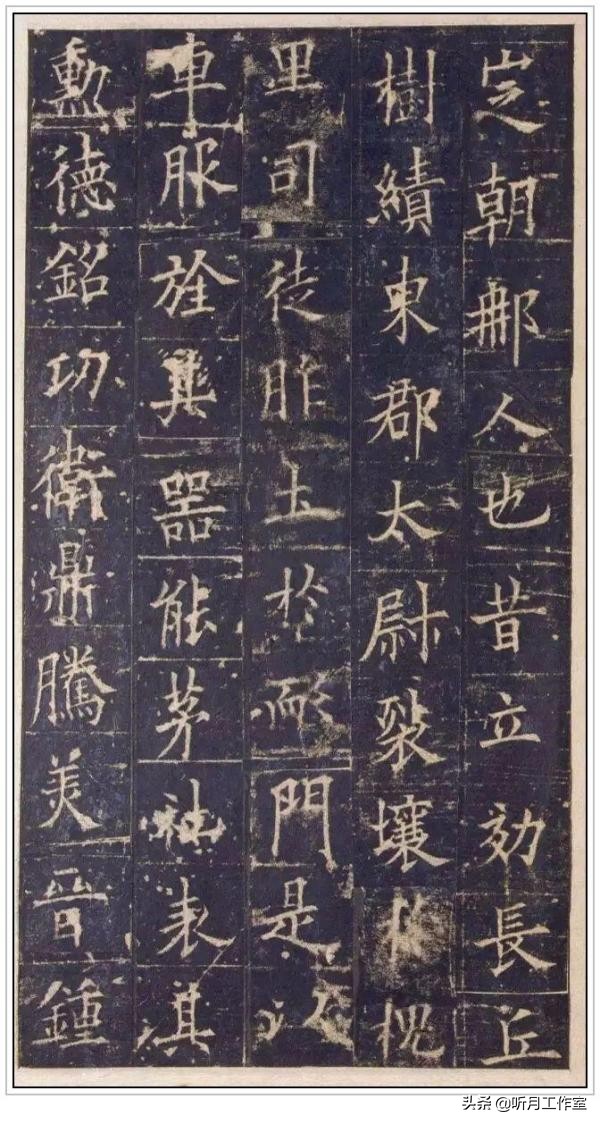 定朝那人也昔立効長丘
樹績東郡太尉裂壤於槐
里司徒胙土於耏門是以
車服旌其器能茅社表其
勳德銘功衛鼎騰美晉鍾
头条 @听月工作室